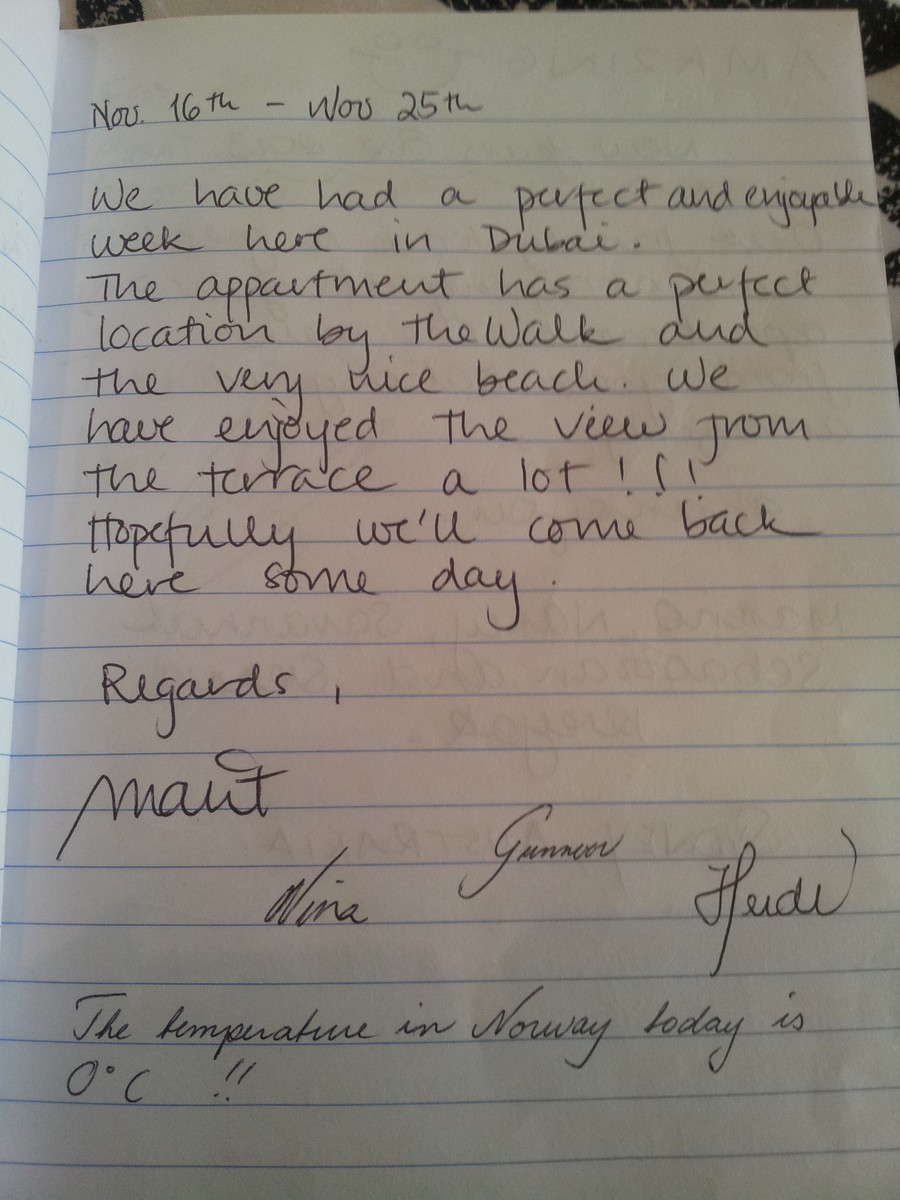 Nov. 16th - Nov 25th
We have had a perfect and enjoyable
week here in Dubai.
The appartment has a perfect
location by the Walk and
the very nice beach. We
have enjoyed the view from
the terrace a lot !!!
Hopefully we'll come back
here some day.
Regards,
Marit
Gunnvor
Nina
Heidi
The temperature in Norway today is
0°C !!